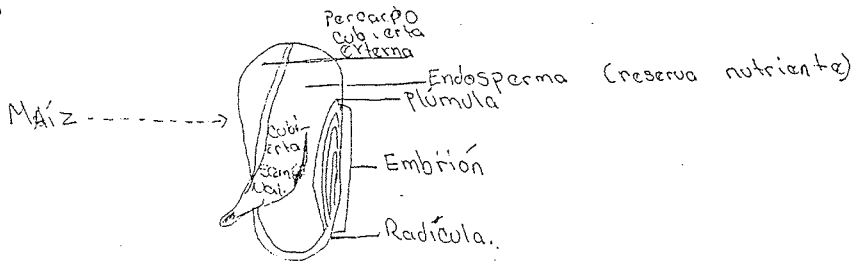 Percarpo
cubierta
externa
Endosperma (reserva nutriente)
Plúmula
MAíz
Cubi
erta
Embrión
Radícula.